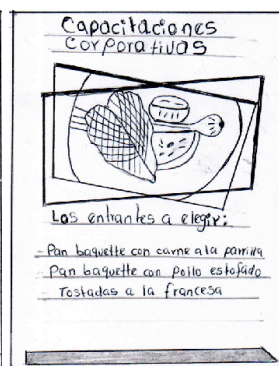 Capacitaciones
Corporativas
Los entrantes a elegir:
- Pan baguette con carne a la parrilla
Pan baguette con pollo estofado
Tostadas a la francesa